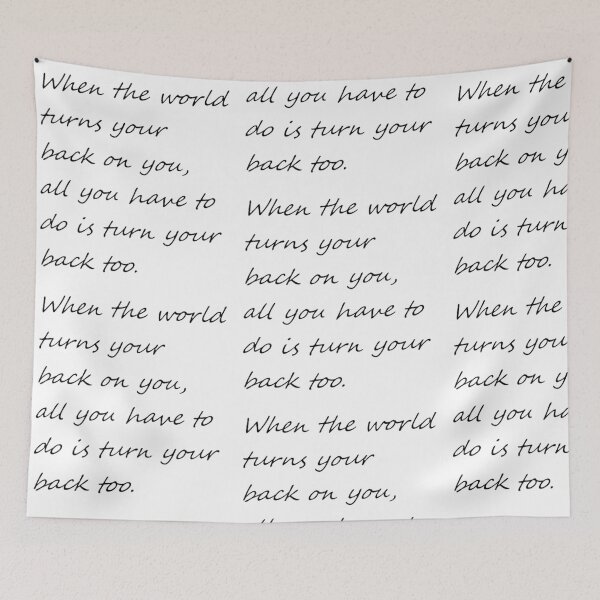 When the world
turns your
back on you,
all you have to
do is turn your
back too.
When the world
turns your
back on you,
all you have to
do is turn your
back too.
all you have to
do is turn your
back too.
When the world
turns your
back on you,
all you have to
do is turn your
back too.
When the world
turns your
back on you,
When the
turns you
back on y
all you ha
do is turn
back too.
When the
turns you
back on y
all you ha
do is turn
back too.